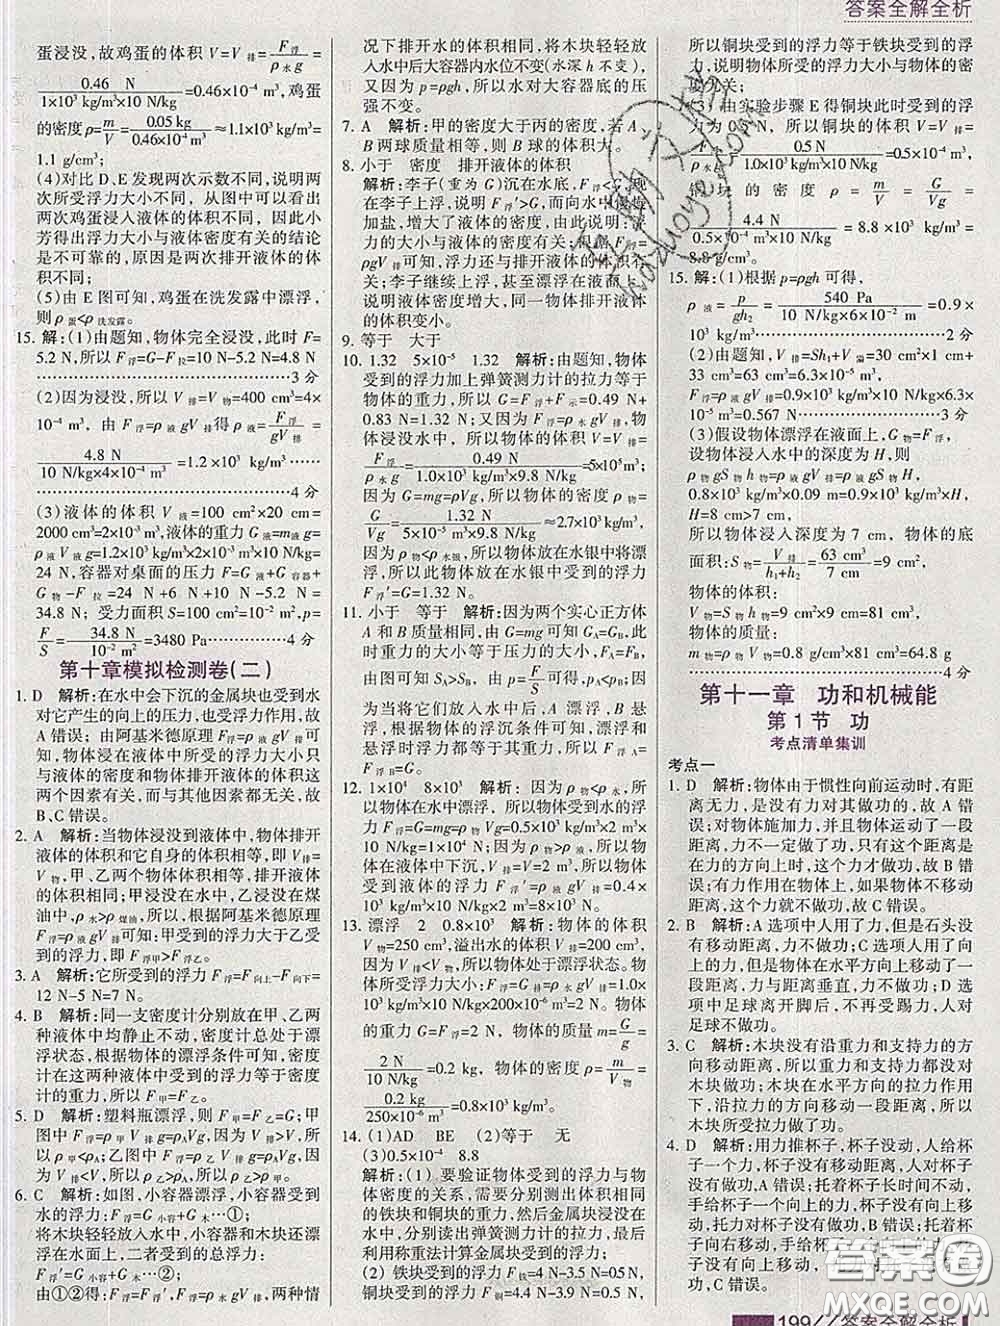 答案全解全析
蛋浸没，故鸡蛋的体积 V=V排=F浮/ρ水g=
0.46 N/(1×10³ kg/m³×10 N/kg)=0.46×10⁻⁴ m³，鸡蛋
的密度ρ=m/V=0.05 kg/(0.46×10⁻⁴ m³)≈1.1×10³ kg/m³=
1.1 g/cm³；
(4)对比 D、E 发现两次示数不同，说明两
次所受浮力大小不同，从图中可以看出
两次鸡蛋浸入液体的体积不同，因此小
芳得出浮力大小与液体密度有关的结论
是不可靠的，原因是两次排开液体的体
积不同；
(5)由 E 图可知，鸡蛋在洗发露中漂浮，
则ρ蛋<ρ洗发露。
15. 解：(1)由题知，物体完全浸没，此时 F=
5.2 N，所以 F浮=G-F拉=10 N-5.2 N=4.8 N
……3分
(2)因为浸没，所以 V排=V物=400 cm³=4×
10⁻⁴ m³，由 F浮=ρ液gV排得ρ液=F浮/gV排=
4.8 N/(10 N/kg×4×10⁻⁴ m³)=1.2×10³ kg/m³……
……4分
(3)液体的体积 V液=100 cm²×20 cm=
2000 cm³=2×10⁻³ m³，液体的重力 G液=m液g=
ρ液V液g=1.2×10³ kg/m³×2×10⁻³ m³×10 N/kg=
24 N，容器对桌面的压力 F=G液+G容器+
G物-F拉=24 N+6 N+10 N-5.2 N=
34.8 N；受力面积 S=100 cm²=10⁻² m²，p=
F/S=34.8 N/10⁻² m²=3480 Pa……4分
第十章模拟检测卷(二)
1. D 解析：在水中会下沉的金属块也受到水
对它产生的向上的压力，也受浮力作用，故
A 错误；由阿基米德原理 F浮=G排=ρ液gV排
可知，物体在液体中所受的浮力大小只
与液体的密度和物体排开液体的体积这
两个因素有关，而与其他因素都无关，故
B、C 错误。
2. A 解析：当物体浸没到液体中，物体排开
液体的体积和它自身的体积相等，即 V排=
V物，甲、乙两个物体体积相等，则 V排甲=
V排乙；甲浸没在水中，乙浸没在煤
油中，ρ水>ρ煤油，所以，根据阿基米德原理
F浮=ρ液gV排可知：甲受到的浮力大于乙受
到的浮力，即 F浮甲>F浮乙。
3. A 解析：它所受到的浮力 F浮=F向上-F向下=
12 N-5 N=7 N。
4. B 解析：同一支密度计分别放在甲、乙两
两种液体中均静止不动，密度计总处于漂
浮状态，根据物体的漂浮条件可知，密度
计在这两种液体中受到的浮力等于密度
计的重力，所以 F甲=F乙。
5. D 解析：塑料瓶漂浮，则 F甲=F乙=G；甲
图中 F浮=ρ甲V排g=ρAV排g；乙图中
F浮=ρ乙V排g=ρAVg，因为 V排>V，所
以ρ甲<ρA；乙图中悬浮，ρ乙=ρA，所以ρ甲<ρ乙。
6. C 解析：如图，小容器漂浮，小容器受到
的浮力：F浮=G小容+G木…①；
将木块轻轻放入水中，小容器和木块还漂
浮在水面上，二者受到的总浮力：
F浮′=G小容+G木…②
由①②得：F浮=F浮′，即两种情
况下排开水的体积相同，将木块轻轻放
入水中后大容器内水位不变(水深 h 不变)，
又因为 p=ρgh，所以水对大容器底的压
强不变。
7. A 解析：甲的密度大于丙的密度，若 A、
B 两球质量相等，则 B 球的体积大。
8. 小于 密度 排开液体的体积
解析：李子(重为 G)沉在水底，F浮<G，现
在李子上浮，说明 F浮′>G，而向水中慢慢
加盐，增大了液体的密度，由此说明：浮
力的大小与液体的密度有关；由 F浮=
ρgV排可知，浮力还与排开液体的体积有
关；李子继续上浮，甚至漂浮在液面上，
说明液体密度增大，同一物体排开液体
的体积变小。
9. 等于 大于
10. 1.32 5×10⁻⁵ 1.32 解析：由题知，物体
受到的浮力加上弹簧测力计的拉力等于
物体的重力，所以 G=F浮+F示=0.49 N+
0.83 N=1.32 N；又因为 F浮=ρ水gV排，物
体浸没水中，所以物体的体积 V=V排=
F浮/ρ水g=0.49 N/(1.0×10³ kg/m³×9.8 N/kg)=5×10⁻⁵ m³
因为 G=mg=ρVg，所以物体的密度ρ物=
G/Vg=1.32 N/(5×10⁻⁵ m³×9.8 N/kg)≈2.7×10³ kg/m³，
因为ρ物<ρ水银，所以物体放在水银中将漂浮，
所以此物体放在水银中受到的浮力
F浮′=G=1.32 N。
11. 小于 等于 解析：因为两个实心正方体
A 和 B 质量相同，由 G=mg 可知 GA=GB，此
时重力的大小等于压力的大小，即 FA=FB，由图
可知 SA>SB，由 p=F/S 可得，pA<pB；
因为
当将它们放入水中后，A 漂浮，B 悬
浮，根据物体的浮沉条件可知，漂浮、悬
浮时浮力都等于其重力，所以 FA=
FB。
12. 1×10⁴ 8×10³ 解析：因为ρ水>ρ物，
所以物体在水中漂浮，所以物体受到的浮
力 F浮=G=mg=ρ物Vg=0.5×10³ kg/m³×2 m³×
10 N/kg=1×10⁴ N；因为ρ物>ρ液，所以物
体在液体中下沉，V排=V=2 m³，所以物体
受到液体的浮力 F浮′=ρ液gV排=0.4×
10³ kg/m³×10 N/kg×2 m³=8×10³ N。
13. 漂浮 2 0.8×10³ 解析：物体的体积
V物=250 cm³，溢出水的体积 V排=200 cm³，
因为 V排<V物，所以物体处于漂浮状态。物体
所受浮力大小 F浮=ρ水gV排=1.0×
10³ kg/m³×10 N/kg×200×10⁻⁶ m³=2 N。物体
的重力 G=F浮=2 N，物体的质量 m=G/g=
2 N/(10 N/kg)=0.2 kg，物体的密度ρ=m/V物=
0.2 kg/(250×10⁻⁶ m³)=0.8×10³ kg/m³。
14. (1)AD BE (2)等于 无
(3)0.5×10⁻⁴ 8.8
解析：(1)要验证物体受到的浮力与物
体密度的关系，需要分别测出体积相同
的铁块和铜块的重力，然后金属块浸没在水
中，分别读出弹簧测力计的示数，
利用称重法计算金属块受到的浮力；
(2)铁块受到的浮力 F铁=4 N-3.5 N=0.5 N，
铜块受到的浮力 F铜=4.4 N-3.9 N=0.5 N，
所以铜块受到的浮力等于铁块受到的浮
力，说明物体所受的浮力大小与物体的密
度无关；
(3)由实验步骤 E 得铜块此时受到的浮
力为 0.5 N，所以铜块的体积 V铜=V排=
F浮/ρ水g=0.5 N/(1.0×10³ kg/m³×10 N/kg)=0.5×10⁻⁴ m³，
铜块的密度ρ=m/V=G/Vg=
4.4 N/(0.5×10⁻⁴ m³×10 N/kg)=8.8×10³ kg/m³=
8.8 g/cm³。
15. 解：(1)根据 p=ρgh 可得，
ρ液=p/gh₂=540 Pa/(10 N/kg×6×10⁻² m)=0.9×
10³ kg/m³……2分
(2)由题知，V排=Sh₁+V溢=30 cm²×1 cm+
33 cm³=63 cm³=6.3×10⁻⁵ m³，
F浮=ρ液gV排=0.9×10³ kg/m³×10 N/kg×6.3×
10⁻⁵ m³=0.567 N……3分
(3)假设物体漂浮在液面上，G物=F浮，
设物体浸入水中的深度为 H，则
ρ物gS物h物=ρ液gS物H，
0.8×10³ kg/m³×0.09 m=0.9×10³ kg/m³×H，
H=8 cm>7 cm，
所以物体浸入深度为 7 cm，物体的底
面积：S物=V排/(h₁+h₂)=63 cm³/7 cm=9 cm²，
物体的体积：
V物=S物h物=9 cm²×9 cm=81 cm³，
物体的质量：
m物=ρ物V物=0.8 g/cm³×81 cm³=64.8 g
……4分
第十一章 功和机械能
第1节 功
考点清单集训
考点一
1. D 解析：物体由于惯性向前运动时，有距
离无力，是没有力对其做功的，故 A 错
误；对物体施加力，并且物体运动了一段
距离，力不一定做了功，只有这个距离是
在力的方向上时，这个力才做功，故 B 错
误；有力作用在物体上，如果物体不移动
距离，这个力就不做功，故 C 错误。
2. B 解析：A 选项中人用了力，但是石头没
有移动距离，力不做功；C 选项人用了向上
的力，物体在水平方向上移动了距离，
力与距离垂直，力不做功；D 选
项中足球离开脚后，不再受踢力，人对
足球不做功。
3. C 解析：木块没有沿重力和支持力的方
向移动距离，所以重力和支持力没有对
木块做功；木块在水平方向的拉力作用
下，沿拉力的方向移动了一段距离，所以
木块所受拉力做了功。
4. D 解析：用力推杯子，杯子没动，人给杯
子一个力，杯子没有移动距离，人对杯子没有
做功，A 错误；托着杯子长时间不动，
手给杯子一个向上的力，杯子没有移动距
离，力对杯子没有做功，B 错误；托着杯
子向右移动，手给杯子一个向上的力，杯
子没有向上移动距离，力对杯子没有做
功，C 错误。
199//答案全解全析
答案圈
MXQE.COM